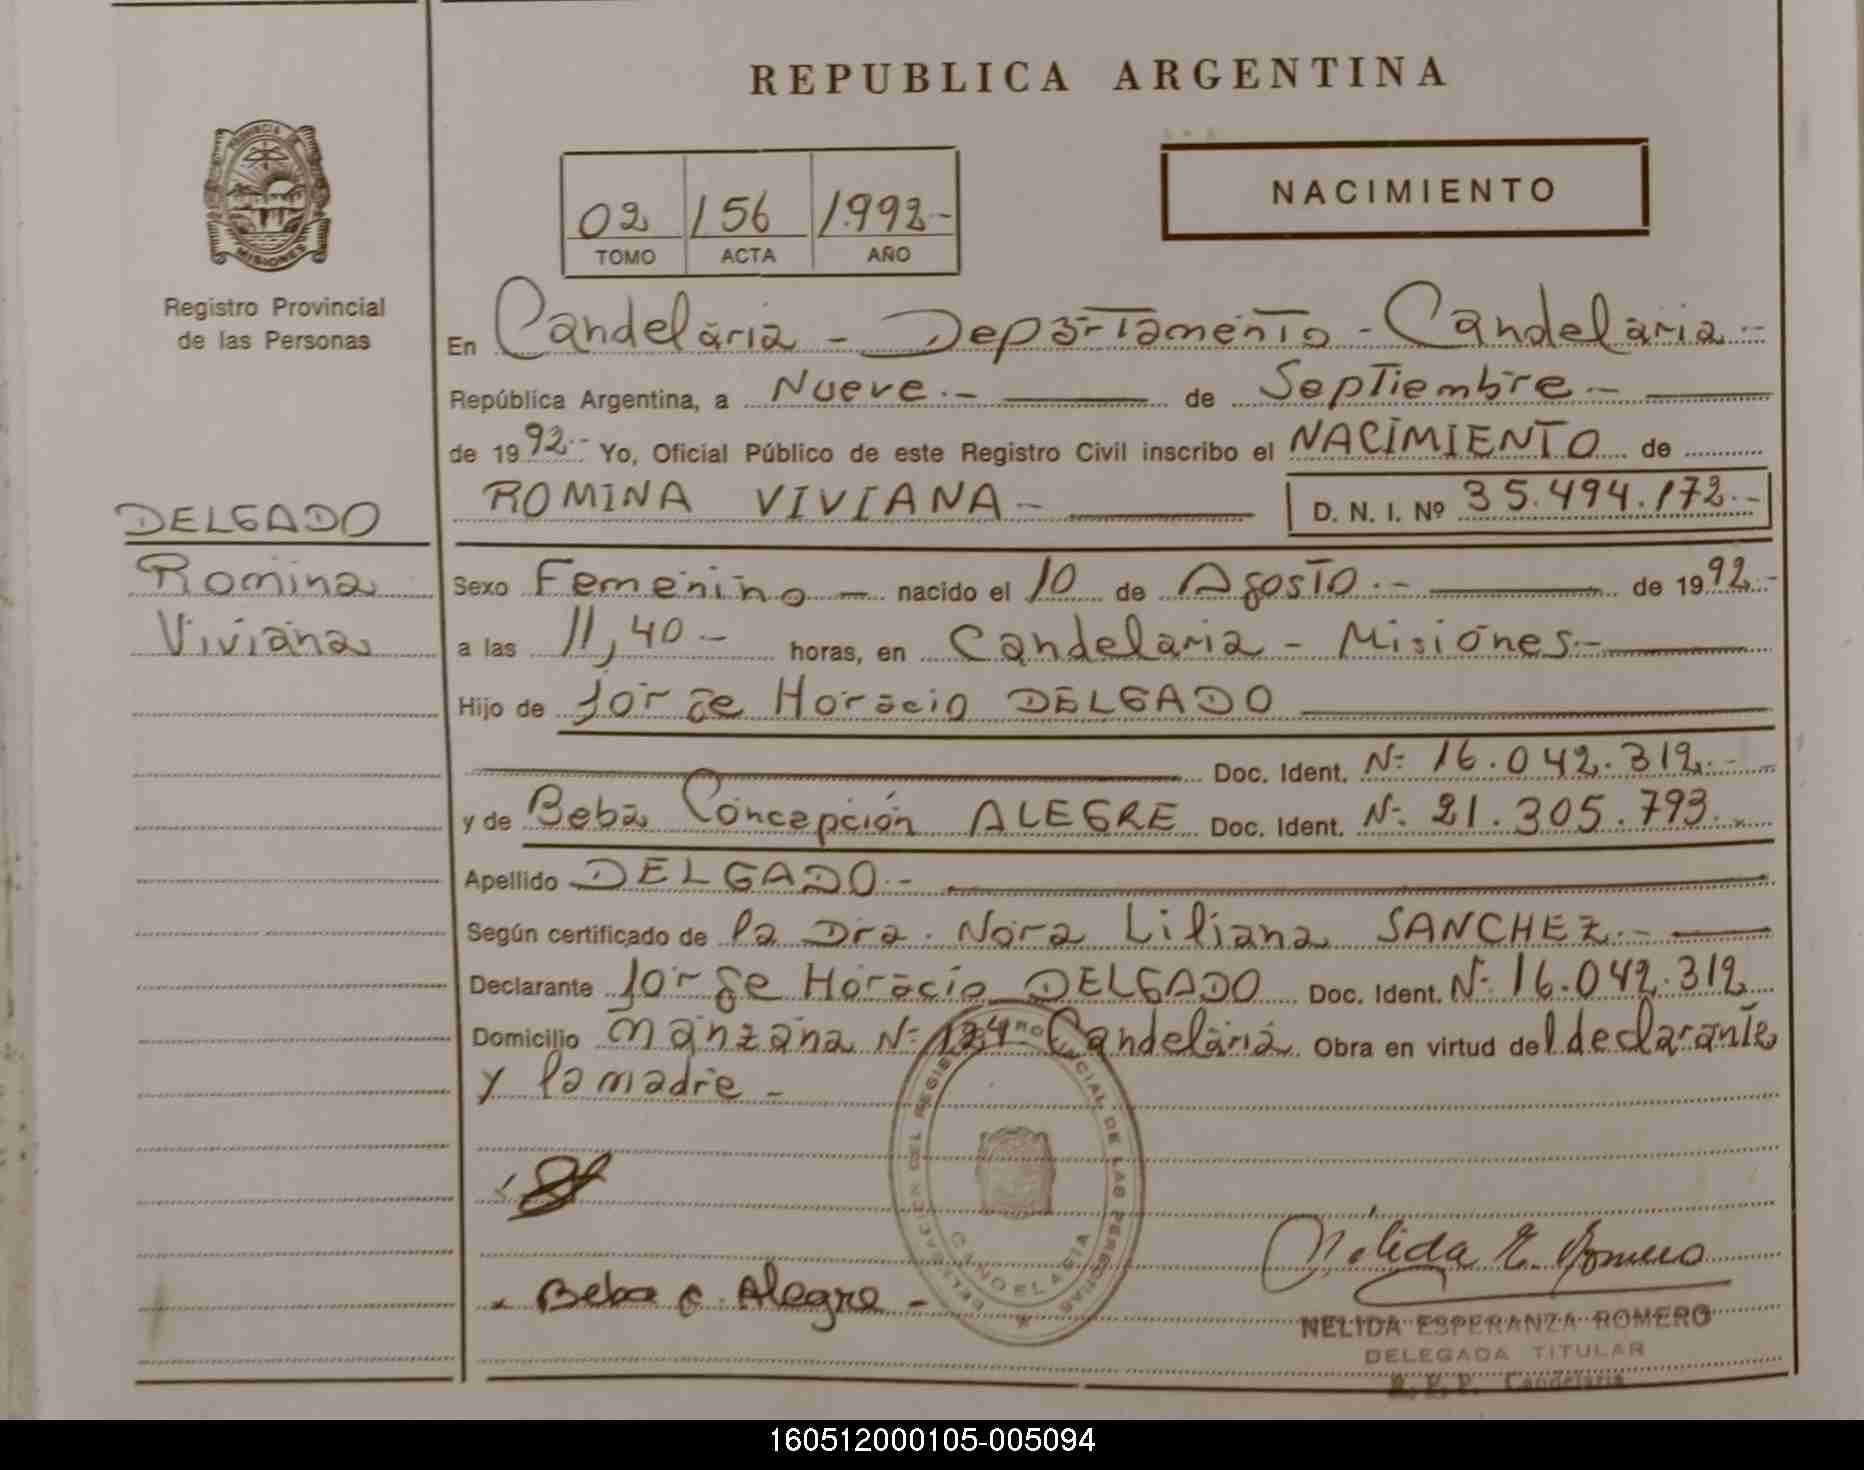 REPUBLICA ARGENTINA
PROVINCIA DE
MISIONES
Registro Provincial
de las Personas
02 156 1.992-
TOMO ACTA AÑO
NACIMIENTO
En Candelaria - Departamento - Candelaria -
República Argentina, a Nueve.- de Septiembre -
de 1992.- Yo, Oficial Público de este Registro Civil inscribo el NACIMIENTO de
ROMINA VIVIANA - D. N. I. Nº 35.494.172.-
DELGADO
Romina
Viviana
Sexo Femenino - nacido el 10 de Agosto.- de 1992.-
a las 11,40 - horas, en Candelaria - Misiones.-
Hijo de Jorge Horacio DELGADO
Doc. Ident. Nº 16.042.312.-
y de Beba Concepción ALEGRE Doc. Ident. Nº 21.305.793.
Apellido DELGADO.-
Según certificado de la Dra. Nora Liliana SANCHEZ.-
Declarante Jorge Horacio DELGADO Doc. Ident. Nº 16.042.312
Domicilio Manzana Nº 124 - Candelaria. Obra en virtud del declarante
y la madre -
DELEGACION DEL REGISTRO PROVINCIAL DE LAS PERSONAS
CANDELARIA
Beba C. Alegre -
Nélida E. Romero
NELIDA ESPERANZA ROMERO
DELEGADA TITULAR
R. P. P. Candelaria
160512000105-005094